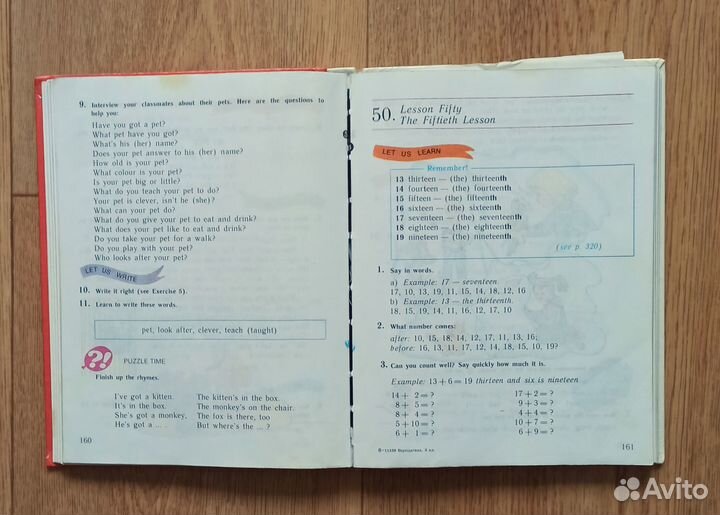 9. Interview your classmates about their pets. Here are the questions to
help you:
Have you got a pet?
What pet have you got?
What's his (her) name?
Does your pet answer to his (her) name?
How old is your pet?
What colour is your pet?
Is your pet big or little?
What do you teach your pet to do?
Your pet is clever, isn't he (she)?
What can your pet do?
What do you give your pet to eat and drink?
What does your pet like to eat and drink?
Do you take your pet for a walk?
Do you play with your pet?
Who looks after your pet?
LET US WRITE
10. Write it right (see Exercise 5).
11. Learn to write these words.
pet, look after, clever, teach (taught)
?! PUZZLE TIME
Finish up the rhymes.
I've got a kitten.
It's in the box.
She's got a monkey,
He's got a ... .
The kitten's in the box.
The monkey's on the chair.
The fox is there, too
But where's the ... ?
160
50. Lesson Fifty
The Fiftieth Lesson
LET US LEARN
Remember!
13 thirteen — (the) thirteenth
14 fourteen — (the) fourteenth
15 fifteen — (the) fifteenth
16 sixteen — (the) sixteenth
17 seventeen — (the) seventeenth
18 eighteen — (the) eighteenth
19 nineteen — (the) nineteenth
(see p. 320)
1. Say in words.
a) Example: 17 — seventeen.
17, 10, 13, 19, 11, 15, 14, 18, 12, 16
b) Example: 13 — the thirteenth.
18, 15, 19, 14, 11, 16, 12, 17, 10
2. What number comes:
after: 10, 15, 18, 14, 12, 17, 11, 13, 16;
before: 16, 13, 11, 17, 12, 14, 18, 15, 10, 19?
3. Can you count well? Say quickly how much it is.
Example: 13 + 6 = 19 thirteen and six is nineteen
14 + 2 = ?
8 + 5 = ?
8 + 4 = ?
5 + 10 = ?
6 + 1 = ?
17 + 2 = ?
9 + 3 = ?
4 + 4 = ?
10 + 7 = ?
6 + 9 = ?
Верещагина, 3 кл.
161
Avito